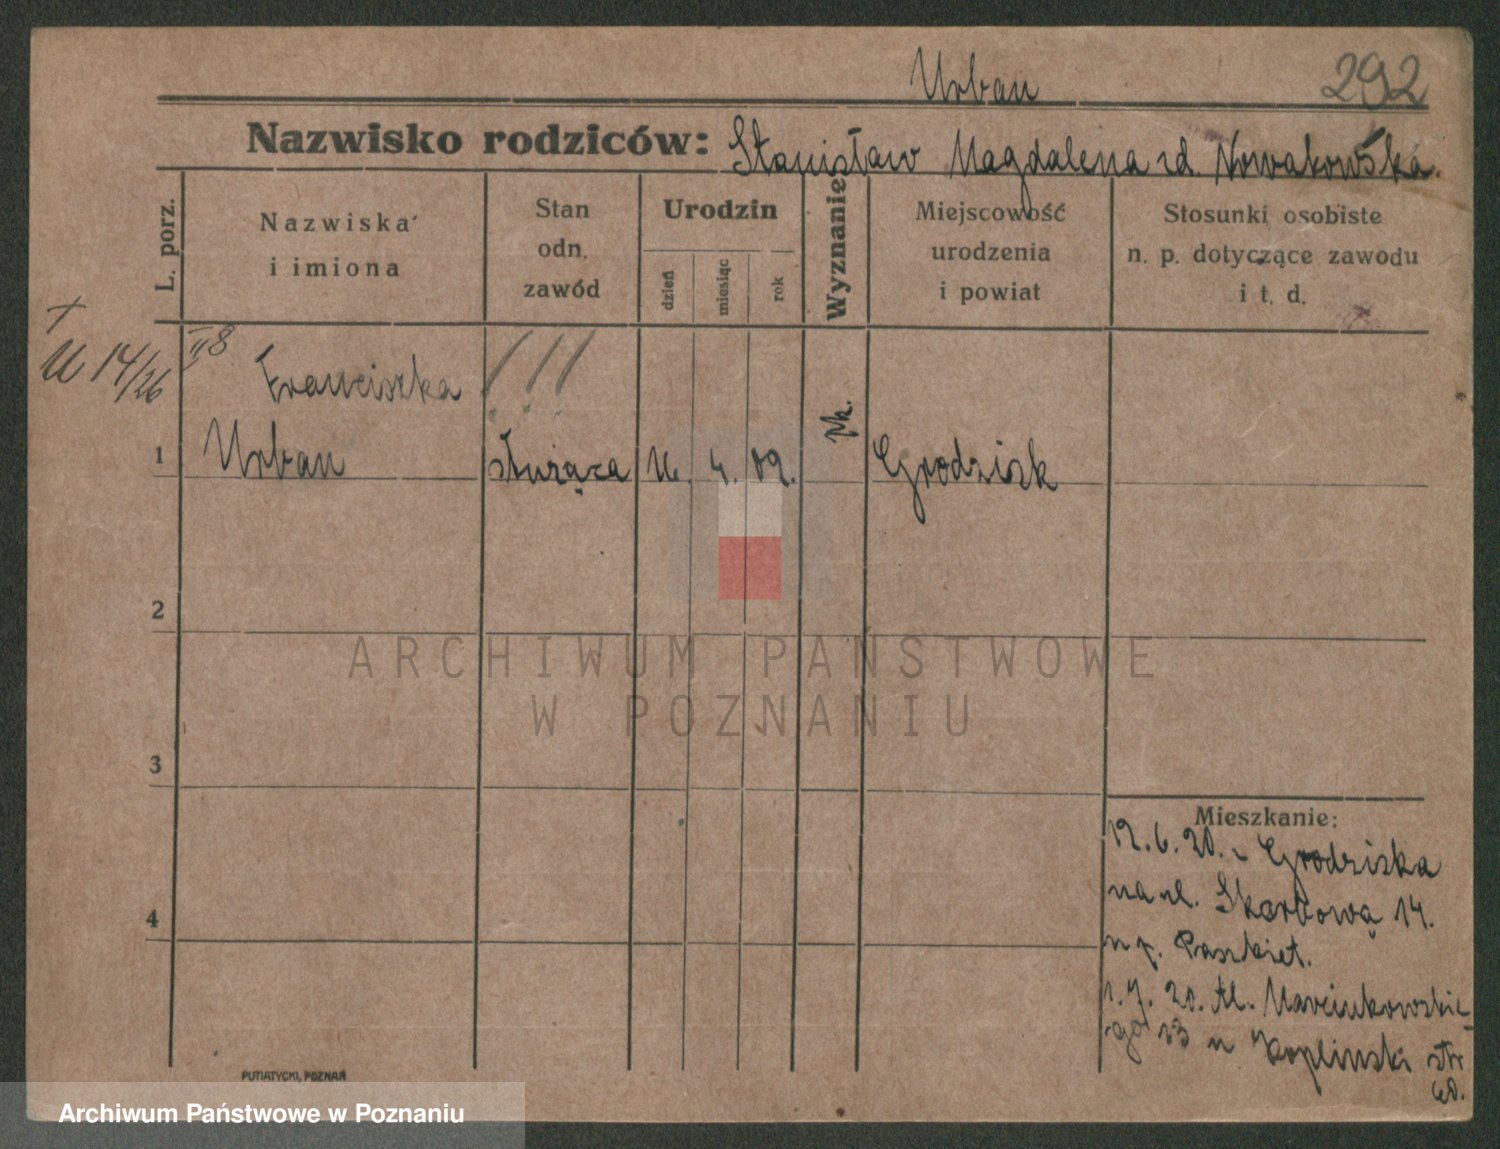 Urban
292
Nazwisko rodziców: Stanisław Magdalena rd. Nowakowska.
L. porz.
Nazwiska
i imiona
Stan
odn.
zawód
Urodzin
dzień
miesiąc
rok
Wyznanie
Miejscowość
urodzenia
i powiat
Stosunki osobiste
n. p. dotyczące zawodu
i t. d.
U 14/26
Franciszka
1 Urban służąca 4. 09. Grodzisk
2
3
4
Mieszkanie:
12.6.20. Grodziska
na ul. Skarbową 14.
1.7.20. Al. Marcinkowskie-
go 23
PUTIATYCKI, POZNAŃ
ARCHIWUM PAŃSTWOWE
W POZNANIU
Archiwum Państwowe w Poznaniu